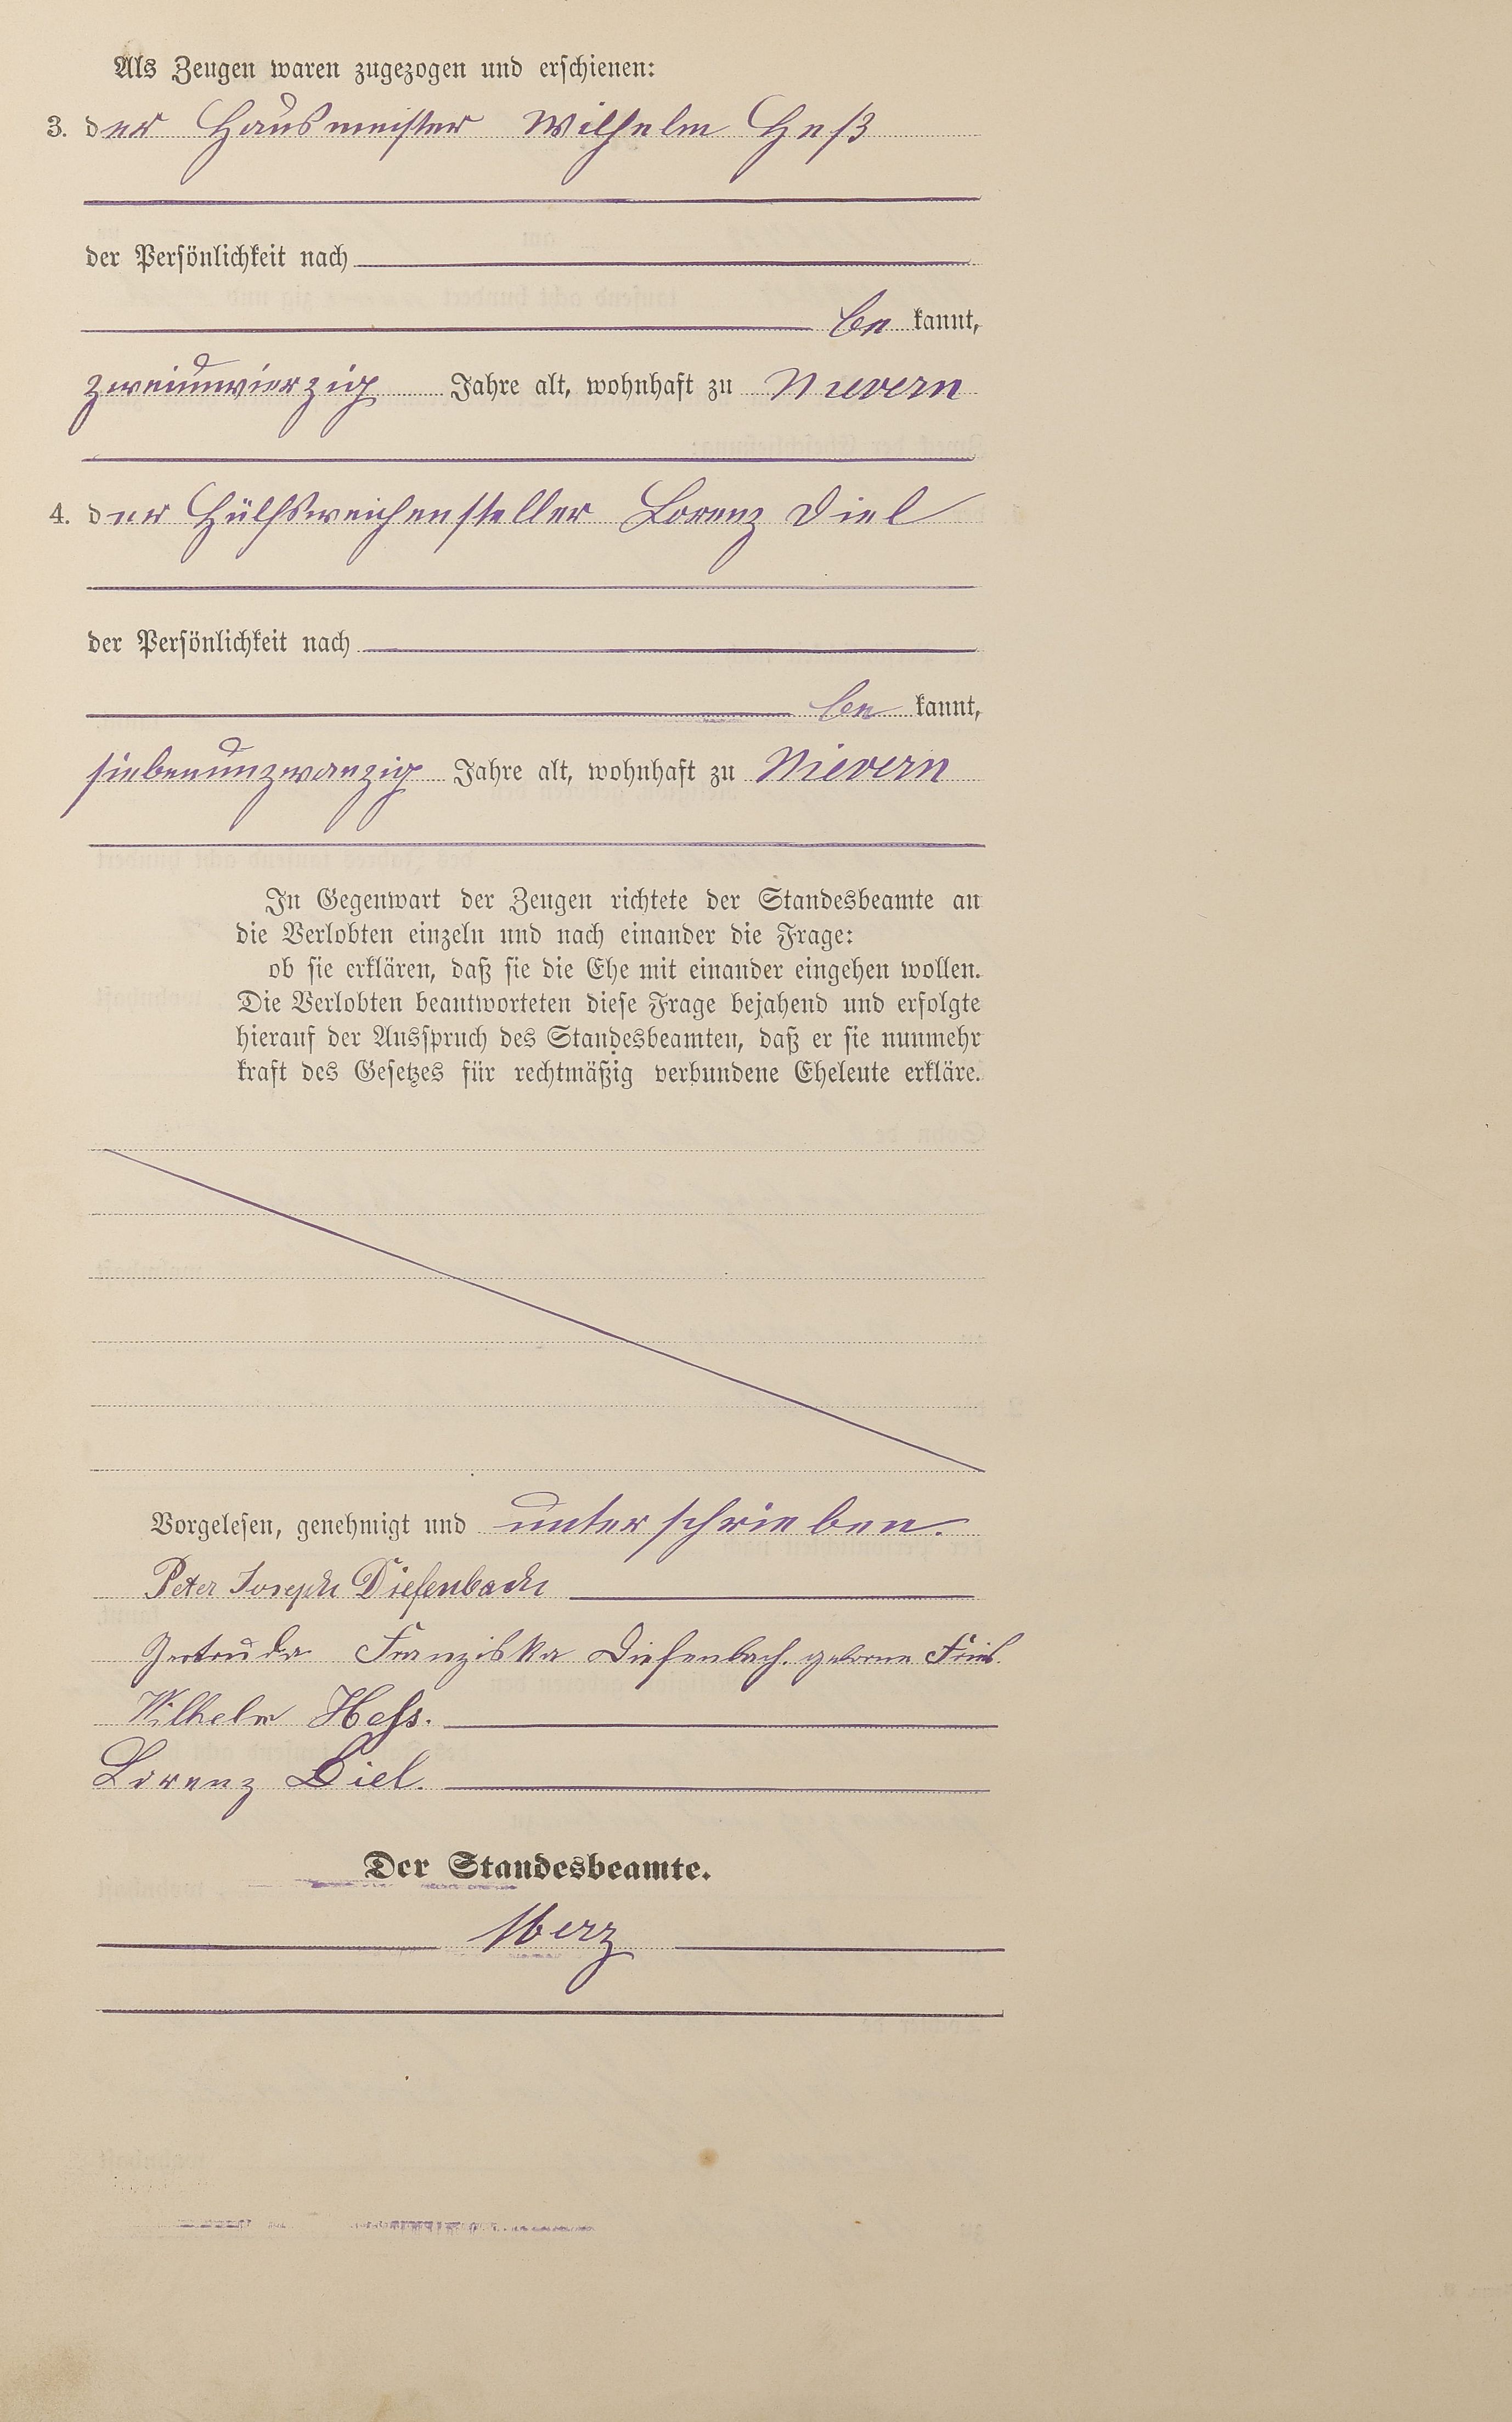 Als Zeugen waren zugezogen und erschienen:
3. der Hausmeister Wilhelm Heß
der Persönlichkeit nach
be kannt,
zweiunvierzig Jahre alt, wohnhaft zu Nievern
4. der Hülfsweichensteller Lorenz Diel
der Persönlichkeit nach
be kannt,
siebenunzwanzig Jahre alt, wohnhaft zu Nievern
In Gegenwart der Zeugen richtete der Standesbeamte an
die Verlobten einzeln und nach einander die Frage:
ob sie erklären, daß sie die Ehe mit einander eingehen wollen.
Die Verlobten beantworteten diese Frage bejahend und erfolgte
hierauf der Ausspruch des Standesbeamten, daß er sie nunmehr
kraft des Gesetzes für rechtmäßig verbundene Eheleute erkläre.
Vorgelesen, genehmigt und unterschrieben.
Peter Joseph Diefenbach
Gertruda Franziska Diefenbach. geborne Fries.
Wilhelm Hess.
Lorenz Diel.
Der Standesbeamte.
Merz